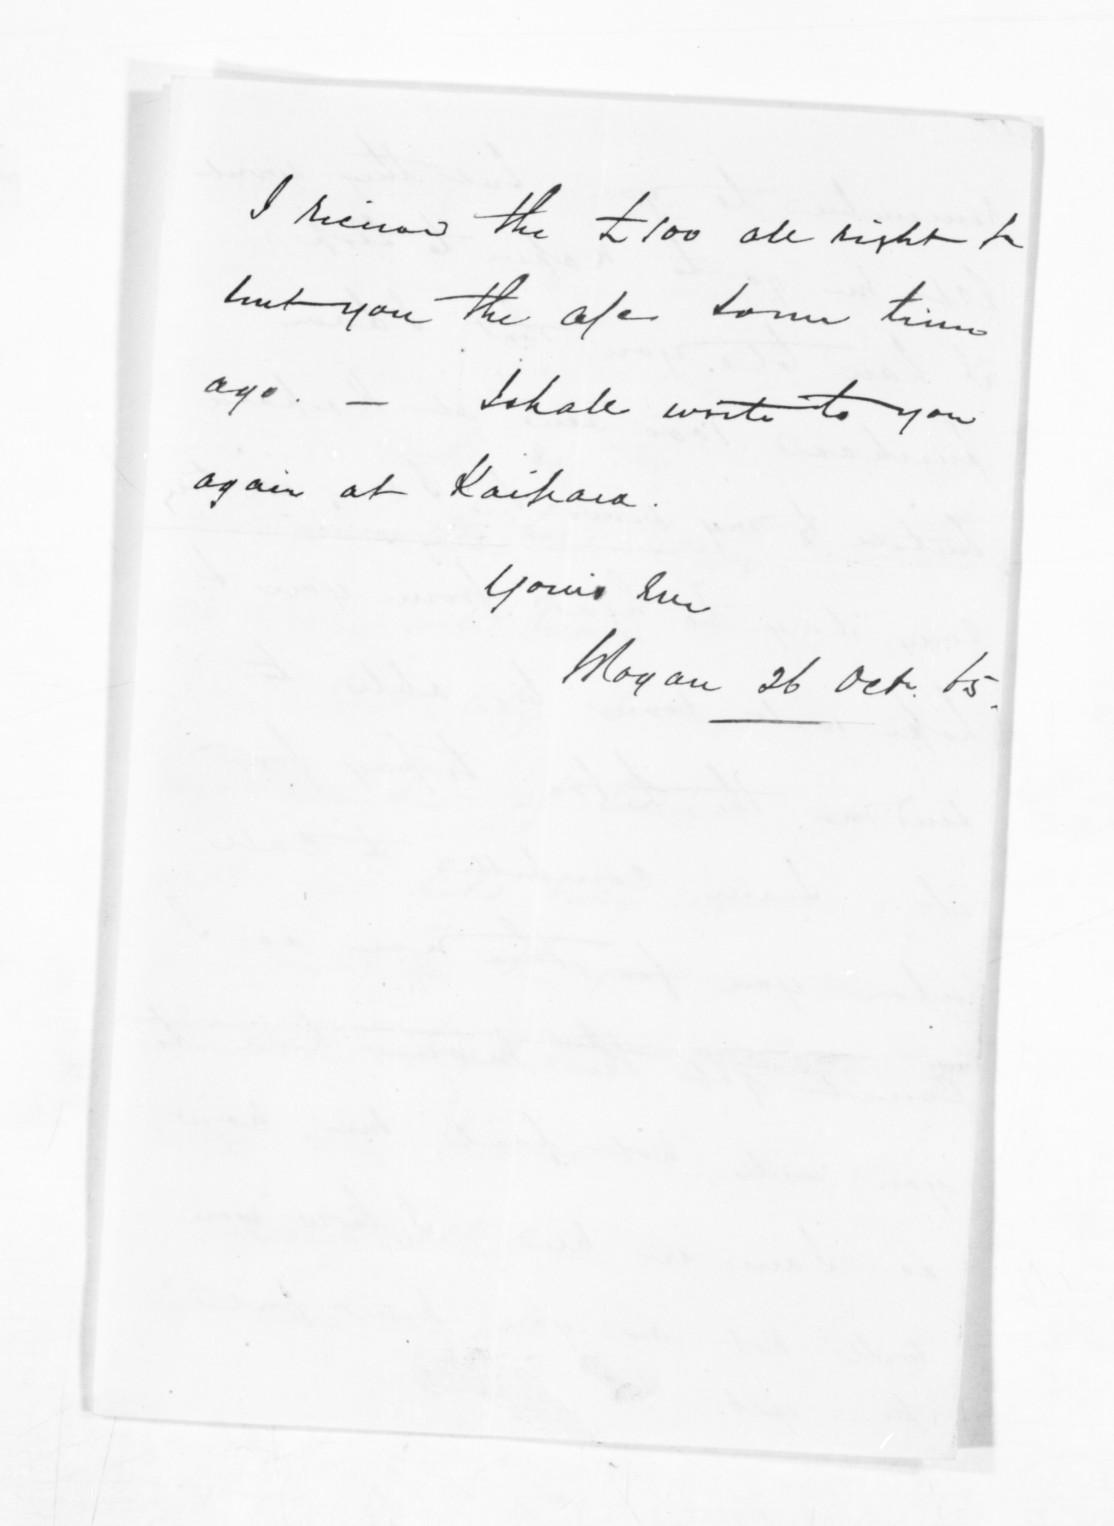 I received the £100 all right &
sent you the a/c some time
ago. — I shall write to you
again at Kaihara.
Yours Ever
26 Oct. 65.